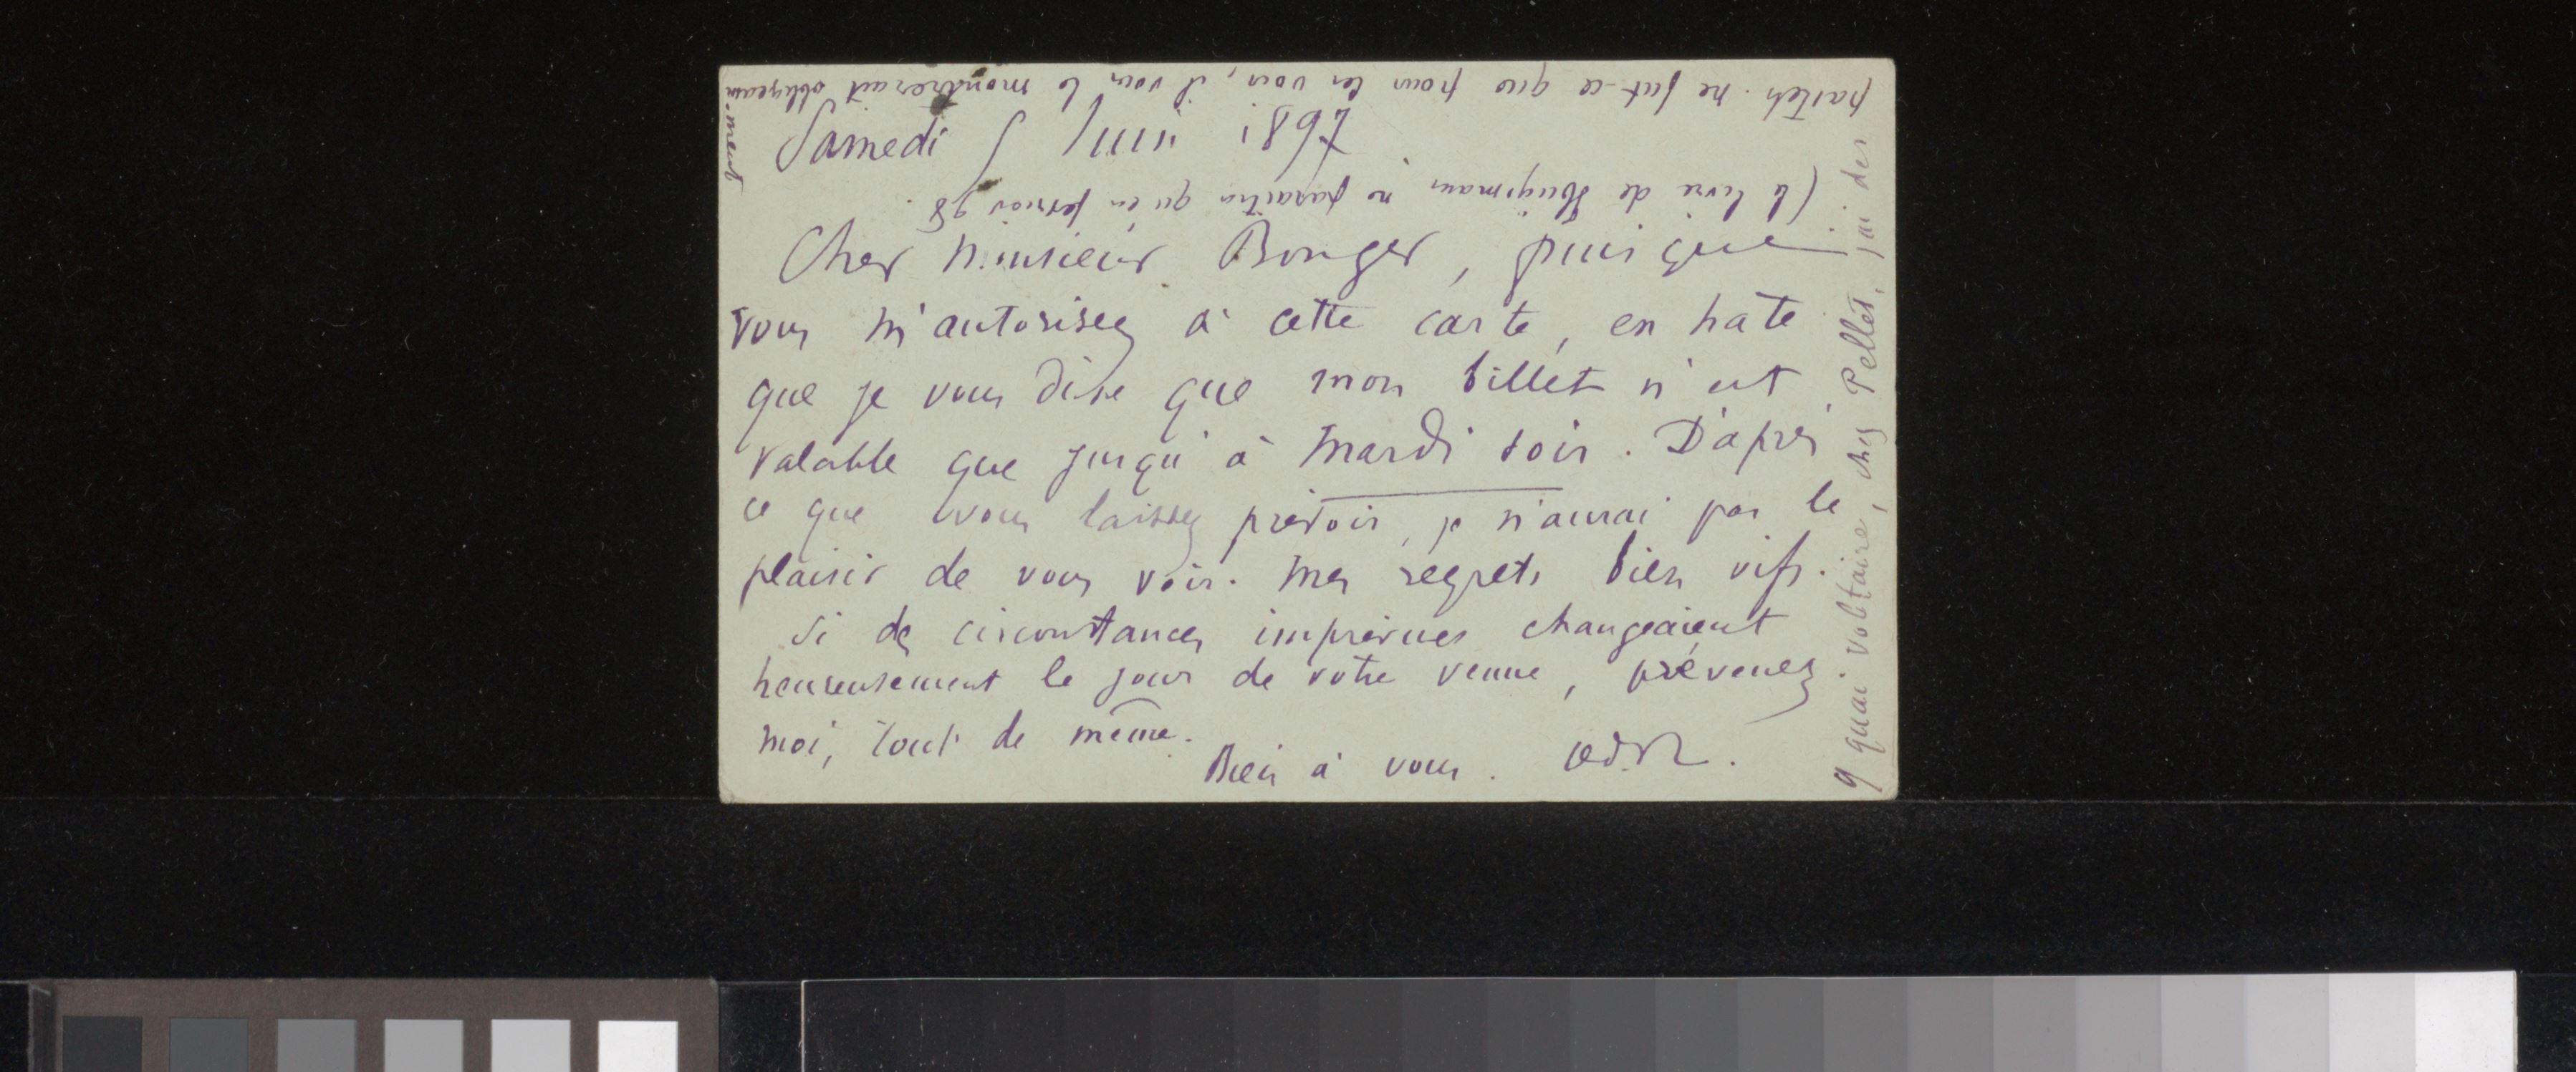 Samedi 5 Juin 1897
Cher Monsieur Bonger, puisque
vous m'autorisez à cette carte, en hate
que je vous dise que mon billet n'est
valable que jusqu'à mardi soir. D'après
ce que vous laissez prévoir, je n'aurai pas le
plaisir de vous voir. Mes regrets bien vifs.
Si des circonstances imprévues changeaient
heureusement le jour de votre venue, prévenez
moi, tout de même.
Bien à vous. OdR.
9 quai voltaire, chez Pellet, j'ai des
pastels. ne fut-ce que pour les voir, il vous le montrerait obligeam-
ment
(le livre de Huysmans ne paraitra qu'en fevrier 98.